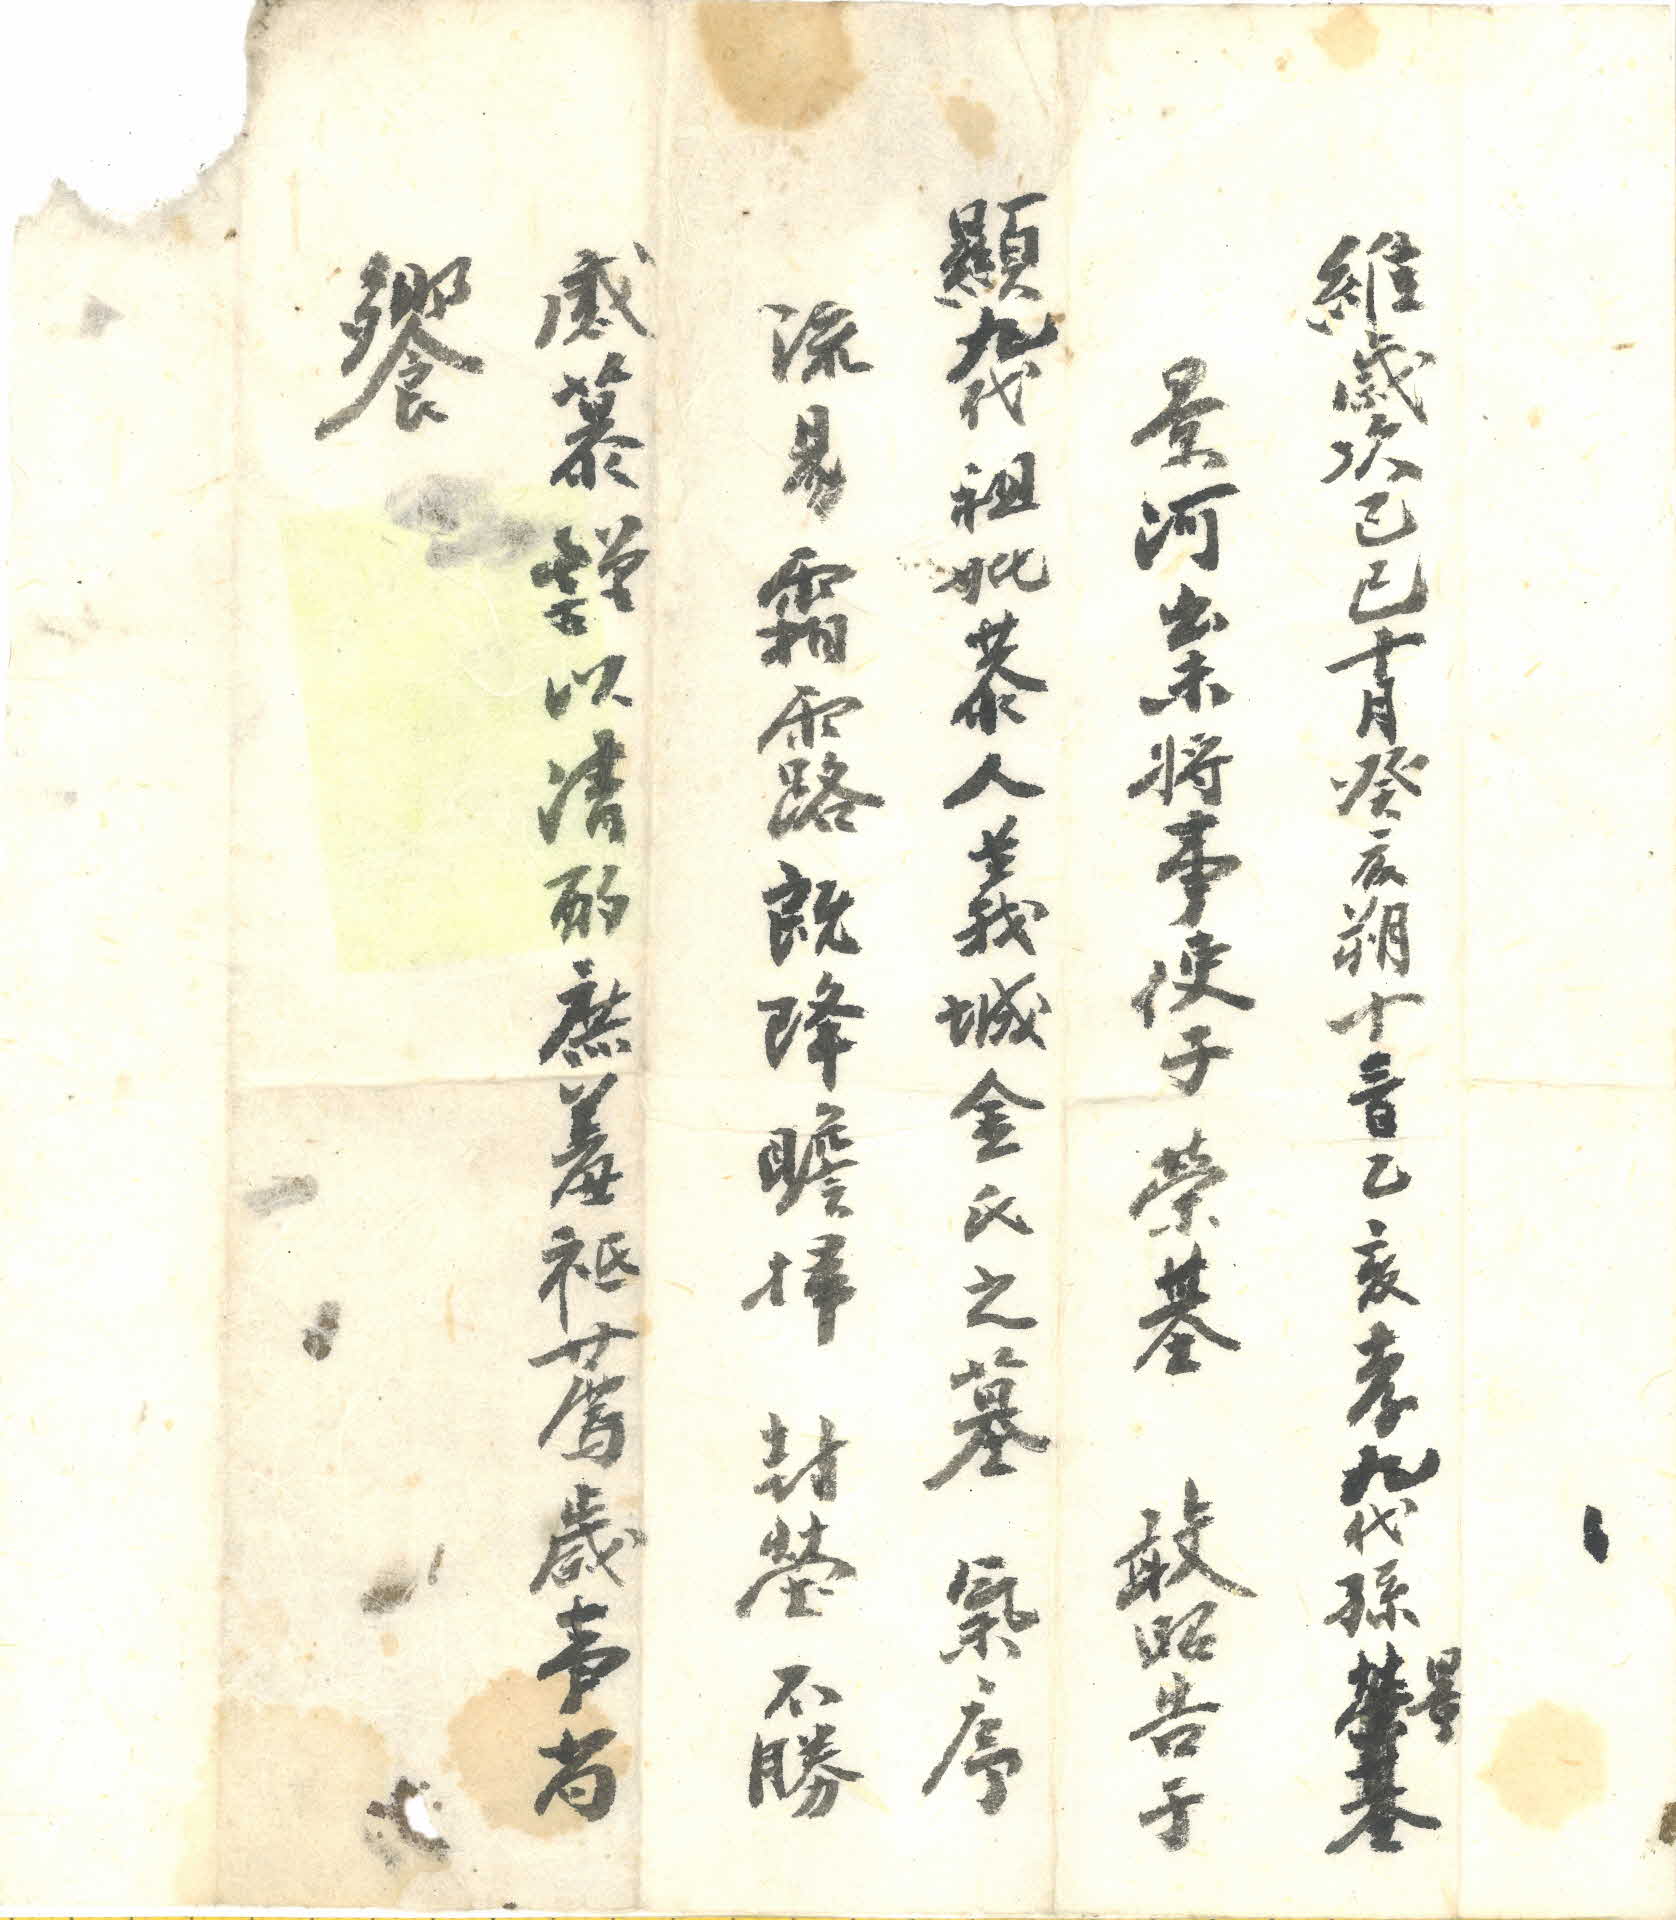 維歲次己巳十月癸亥朔十三日乙亥孝九代孫榮基
景河出未將事使子榮基 敢昭告于
顯九代祖妣恭人義城金氏之墓 氣序
流易霜露旣降瞻掃 封塋不勝
感慕謹以清酌庶羞祗薦歲事尚
饗